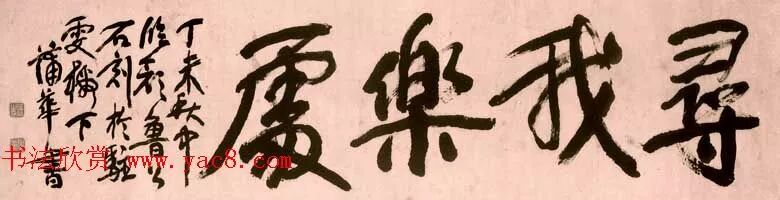 尋我樂處
丁未秋中
臨顏魯公
石刻於
下
蒲華書
书法欣赏 www.yac8.com